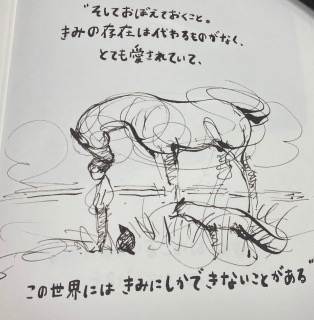 "そしておぼえておくこと。
きみの存在は代わるものがなく、
とても愛されていて、
この世界には きみにしかできないことがある"